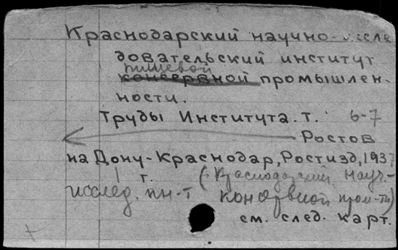 Краснодарский научно-иссле
довательский институт
пищевой
консервной промышлен-
ности.
Труды Института. Т. 6-7
Ростов
на Дону-Краснодар, Ростизд, 1937
г. (Краснодарский науч.-
исслед. ин-т консервной пром-ти)
см. след. карт.